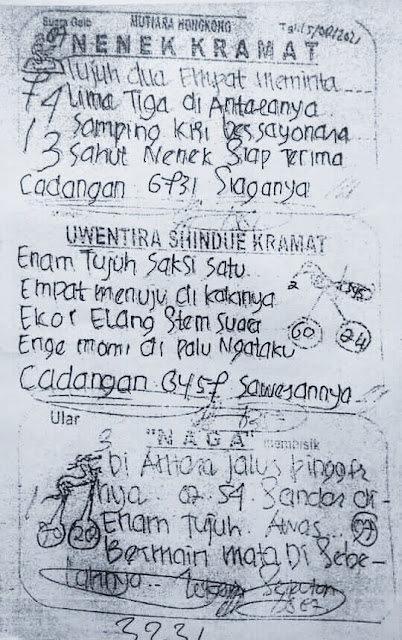 Suara Gaib
MUTIARA HONGKONG
NENEK KRAMAT
Tujuh dua Empat meminta
Lima Tiga di Antaranya
Samping Kiri bessayonara
Sahut Nenek Siap Terima
Cadangan 6731 Siaganya
7 4
1 3
UWENTIRA SHINDUE KRAMAT
Enam Tujuh Saksi Satu
Empat menuju di kakinya
Ekor Elang Stem Suara
Enge momi di palu Ngataku
Cadangan 8457 Sawesannya
2
60
24
Ular
"NAGA" membisik
Di Antara jalus pinggir
nya 02.54. Sandar di-
Enam Tujuh Awas
97
Bermain mata Di Sebe-
lahnya
70
20
3231